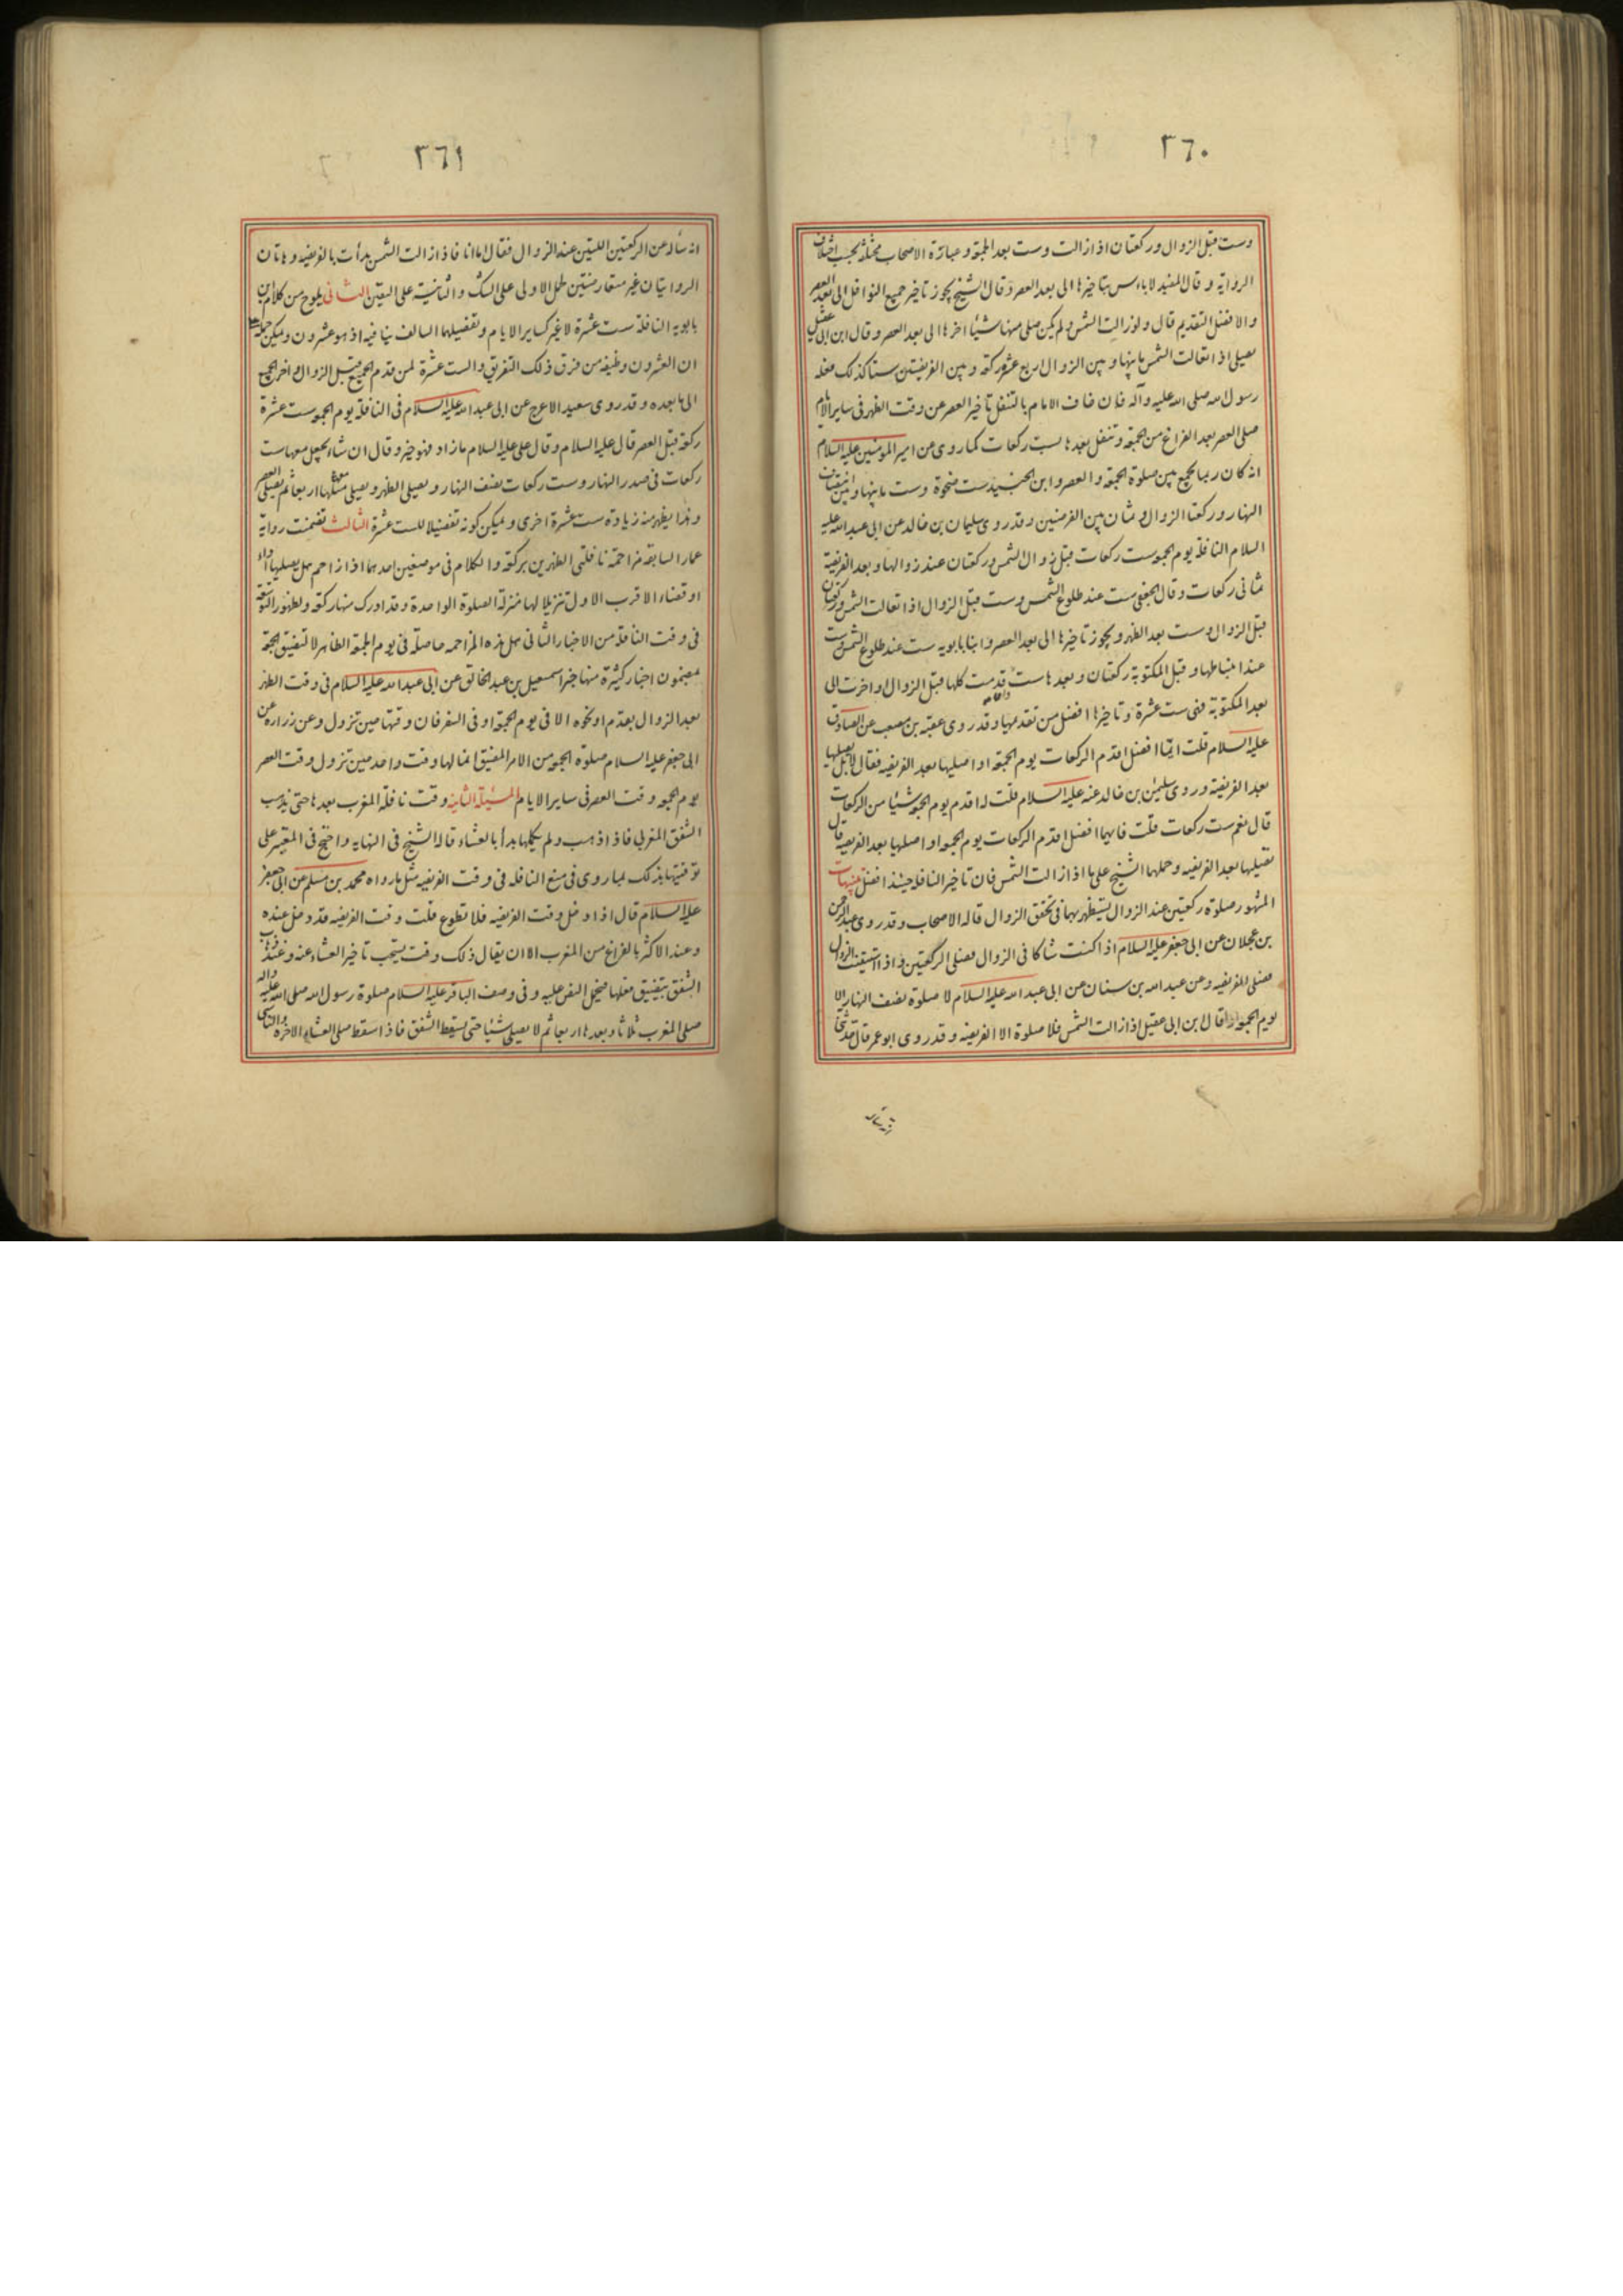 ٣٦٠
وست قبل الزوال وركعتان اذا زالت وست بعد الجمعة وعبارة الاصحاب مختلفة بحسب اختلاف
الرواية وقال المفيد لا باس بتاخيرها الى بعد العصر وقال الشيخ يجوز تاخير جميع النوافل الى بعد العصر
والافضل التقديم قال ولو زالت الشمس ولم يكن صلى منها شيئا اخرها الى بعد العصر وقال ابن ابى عقيل
يصلى اذا تعالت الشمس ما بينها وبين الزوال اربع عشرة ركعة وبين الفريضتين ستا كذلك فعله
رسول الله صلى الله عليه وآله فان خاف الامام بالتنفل تأخير العصر عن وقت الظهر فى ساير الايام
صلى العصر بعد الفراغ من الجمعة وتنفل بعدها بست ركعات كما روى عن امير المومنين عليه السلام
انه كان ربما يجمع بين صلوة الجمعة والعصر وابن الجنيد ست ضحوة وست ما بينها وبين انتصاف
النهار وركعتا الزوال وثمان بين الفرضين وقد روى سليمان بن خالد عن ابى عبد الله عليه
السلام النافلة يوم الجمعة ست ركعات قبل زوال الشمس وركعتان عند زوالها وبعد الفريضة
ثمانى ركعات وقال الجعفى ست عند طلوع الشمس وست قبل الزوال اذا تعالت الشمس وركعتان
قبل الزوال وست بعد الظهر ويجوز تاخيرها الى بعد العصر وابنا بابويه ست عند طلوع الشمس وست
عند انبساطها وقبل المكتوبة ركعتان وبعدها ست وان قدمت كلها قبل الزوال او اخرت الى
بعد المكتوبة فهى ست عشرة وتاخيرها افضل من تقديمها وقد روى عقبة بن مصعب عن الصادق
عليه السلام قلت ايما افضل اقدم الركعات يوم الجمعة او اصليها بعد الفريضه فقال لا بل تصليها
بعد الفريضة وروى سليمن بن خالد عنه عليه السلام قلت له اقدم يوم الجمعة شيئا من الركعات
قال نعم ست ركعات قلت فايهما افضل اقدم الركعات يوم الجمعة او اصليها بعد الفريضة قال
تصليها بعد الفريضه وحملها الشيخ على ما اذا زالت الشمس فان تاخير النافلة حينئذ افضل تنبيهات
المشهور صلوة ركعتين عند الزوال يستظهر بهما فى تحقق الزوال قاله الاصحاب وقد روى عبد الرحمن
بن عجلان عن ابى جعفر عليه السلام اذا كنت شاكا فى الزوال فصلى الركعتين واذا استيقنت الزوال
فصلى الفريضه وعن عبد الله بن سنان عن ابى عبد الله عليه السلام لا صلوة نصف النهار الا
يوم الجمعة وقال ابن ابى عقيل اذا زالت الشمس فلا صلوة الا الفريضه وقد روى ابو عمر قال حدثنى
٣٦١
انه سأله عن الركعتين اللتين عند الزوال فقال اما انا فاذا زالت الشمس بدأت بالفريضه وهاتان
الروايتان غير متعارضتين لحمل الاولى على الشك والثانية على اليقين الثانى يلوح من كلام ابن
بابويه النافلة ست عشرة لا غير كساير الايام وتفصيلهما السالف ينافيه اذ هو عشرون ويمكن حمله على
ان العشرون وظيفه من فرق ذلك التفريق والست عشرة لمن قدم الجميع قبل الزوال او اخر الجميع
الى ما بعده وقد روى سعيد الاعرج عن ابى عبد الله عليه السلام فى النافلة يوم الجمعة ست عشرة
ركعة قبل العصر قال عليه السلام وقال على عليه السلام ما زاد فهو خير وقال ان شاء يجعل منها ست
ركعات فى صدر النهار وست ركعات نصف النهار ويصلى الظهر ويصلى معها اربعا ثم يصلى العصر
وهذا يظهر منه زيادة ست عشرة اخرى ويمكن كونه تفصيلا للست عشرة الثالث تضمنت رواية
عمار السابقه مزاحمة نافلتى الظهرين بركعة والكلام فى موضعين احدهما اذا زاحم هل يصليها اداء
او قضاء الاقرب الاول تنزيلا لها منزلة الصلوة الواحدة وقد ادرك منها ركعة ولظهور التوسعة
فى وقت النافلة من الاخبار الثانى هل هذه المزاحمه حاصلة فى يوم الجمعة الظاهر لا لتضيق الجمعة
مضمون اخبار كثيرة منها خبر اسمعيل بن عبد الخالق عن ابى عبد الله عليه السلام فى وقت الظهر
بعد الزوال بقدم او نحوه الا فى يوم الجمعة او فى السفر فان وقتها حين تزول وعن زرارة عن
ابى جعفر عليه السلام صلوة الجمعة من الامر المضيق انما لها وقت واحد حين تزول وقت العصر
يوم الجمعة وقت العصر فى ساير الايام المسئلة الثانية وقت نافلة المغرب بعدها حتى يذهب
الشفق المغربى فاذا ذهب ولم يكملها بدأ بالعشاء قاله الشيخ فى النهايه واحتج فى المعتبر على
توقيتها بذلك لما روى فى منع النافله فى وقت الفريضه مثل ما رواه محمد بن مسلم عن ابى جعفر
عليه السلام قال اذا دخل وقت الفريضه فلا تطوع قلت وقت الفريضه قد دخل عنده
وعند الاكثر بالفراغ من المغرب الا ان يقال ذلك وقت يستحب تاخير العشاء عنه وعند ذهاب
الشفق يتضيق فعلها فيحمل النص عليه وفى وصف الباقر عليه السلام صلوة رسول الله صلى الله عليه وآله
صلى المغرب ثلاثا وبعدها اربعا ثم لا يصلى شيئا حتى يسقط الشفق فاذا سقط صلى العشاء الاخرة